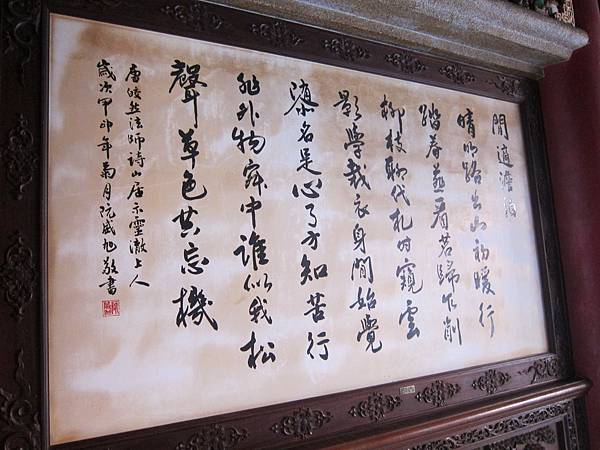 閒適澹
晴明路出山初暖行
踏春蕪看茗歸乍削
柳枝聊代札時窺雲
影學裁衣身閒始覺
隳名是心了方知苦行
非外物寂中誰似我松
聲草色共忘機
唐皎然法師詩山居示靈澈上人
歲次甲卯年菊月阮威旭敬書